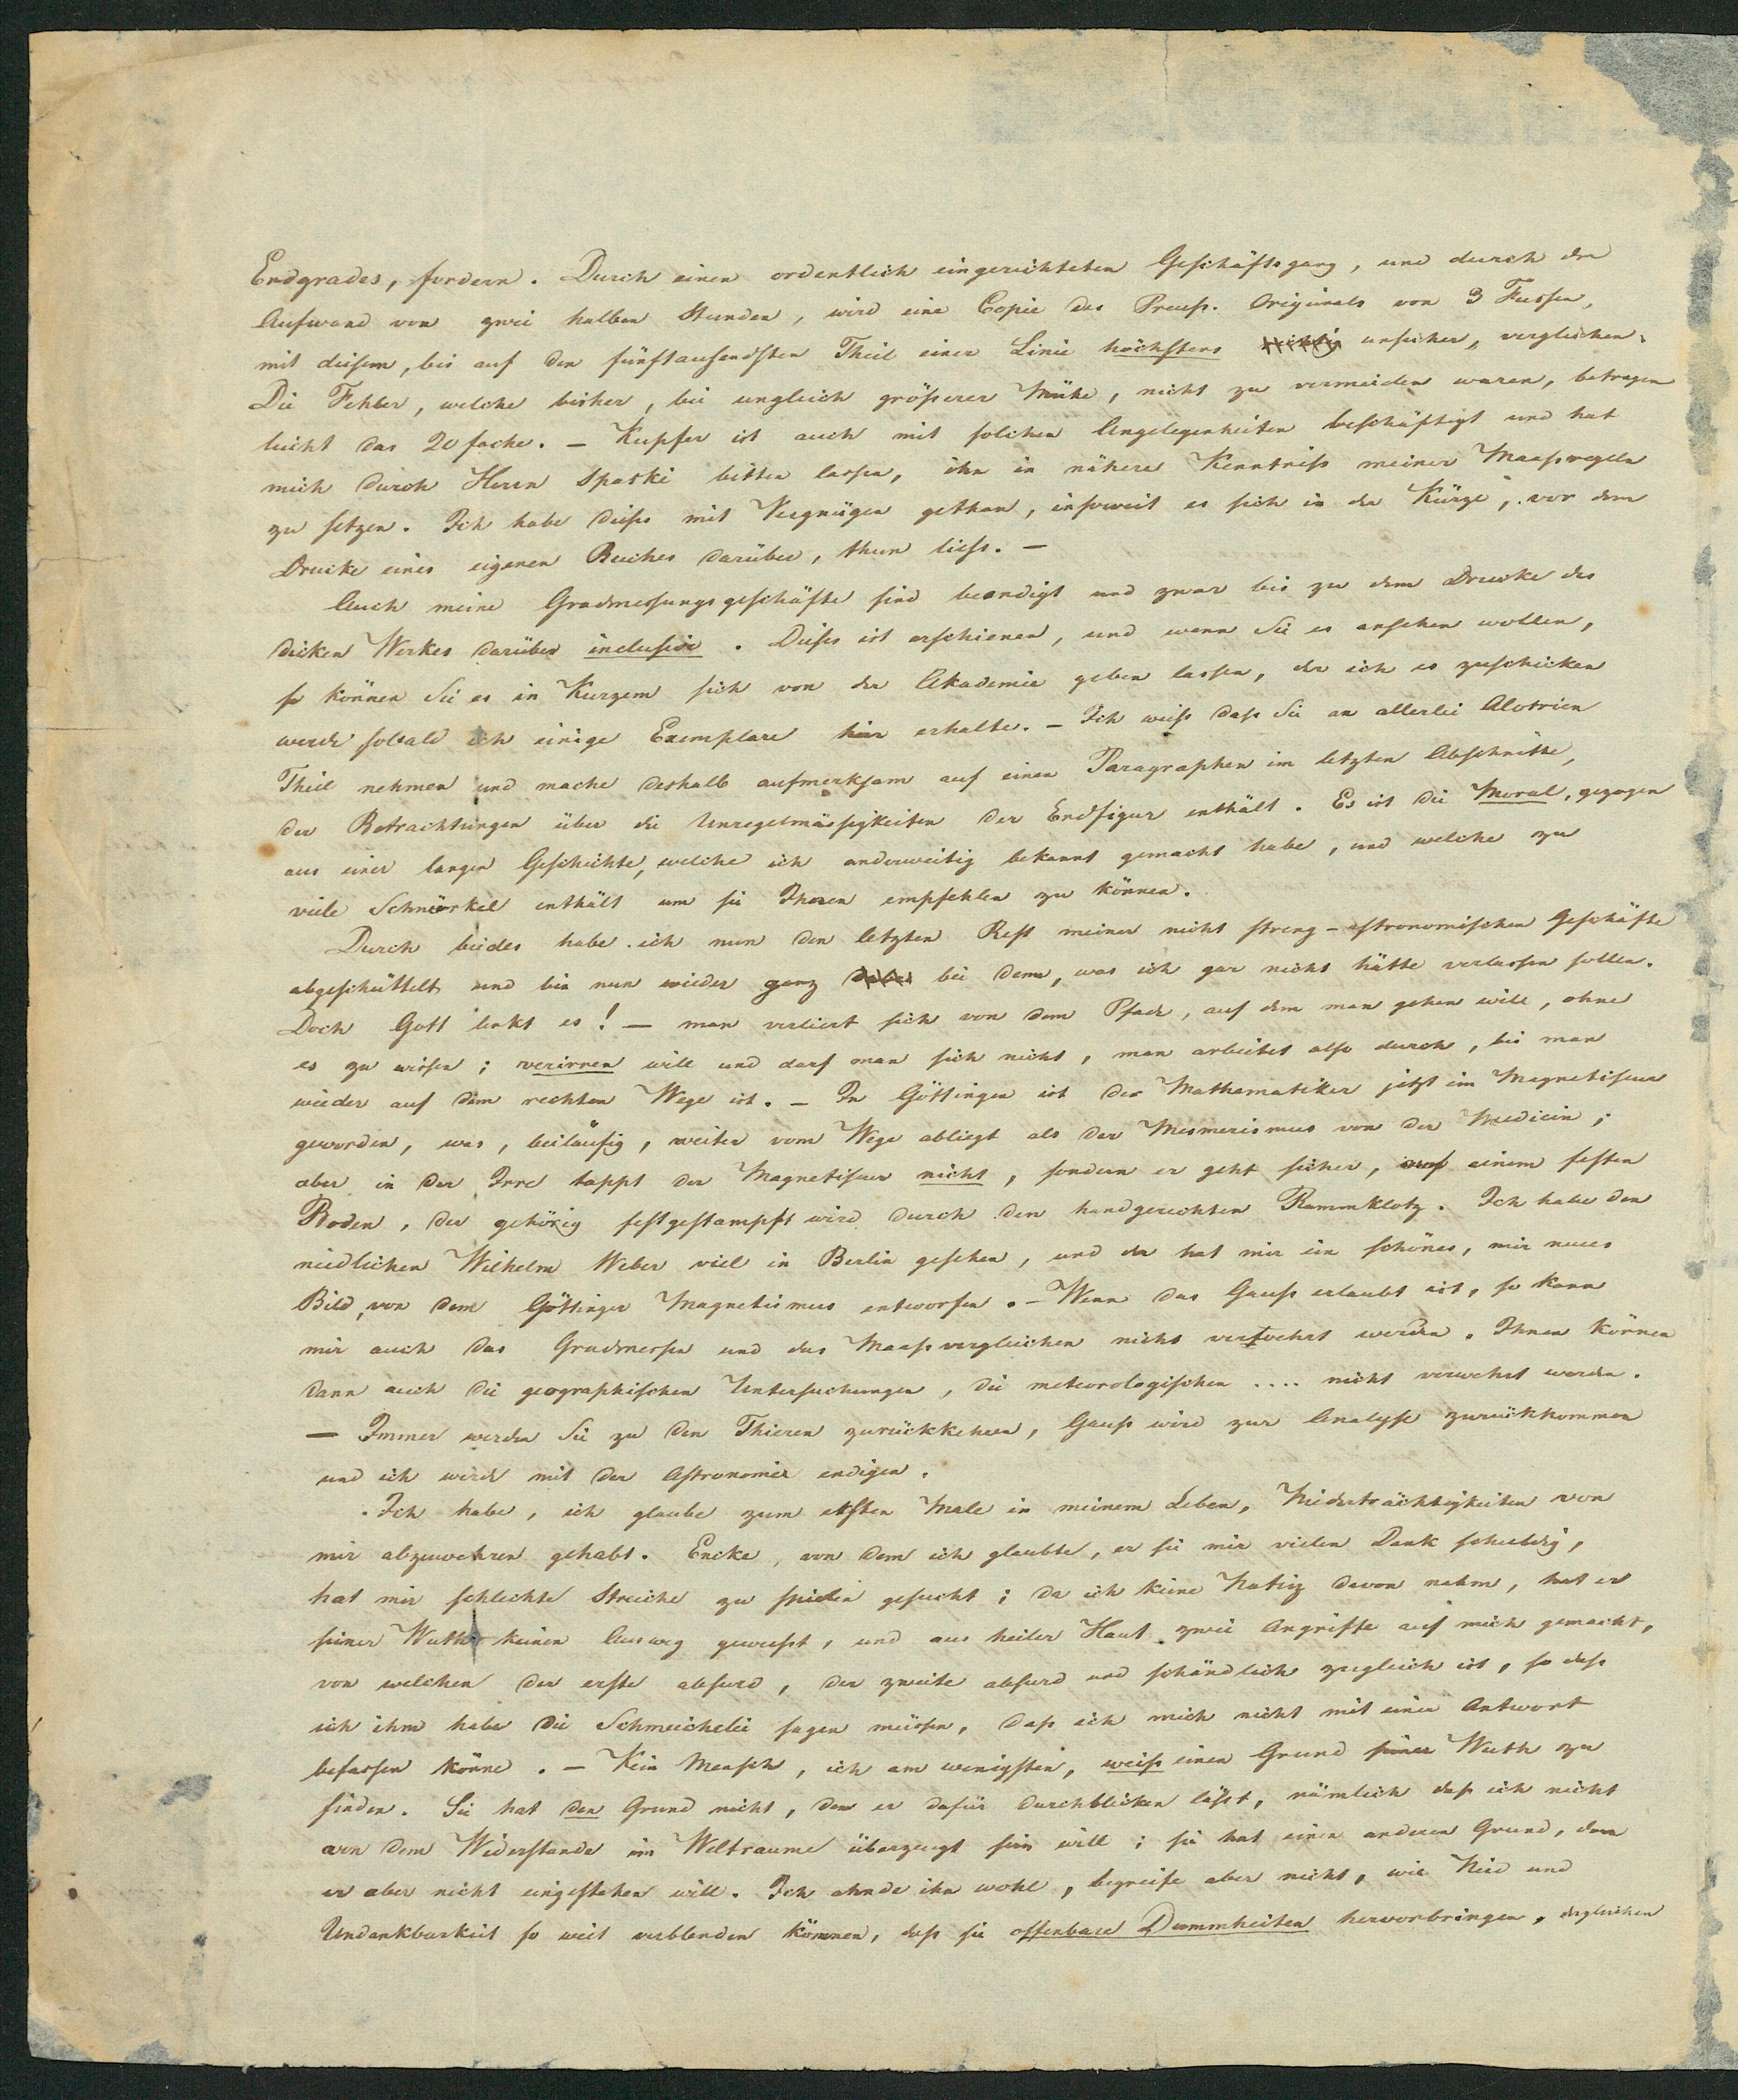 Erdgrades, fordern. Durch einen ordentlich eingerichteten Geschäftsgang, und durch den
Aufwand von zwei halben Stunden, wird eine Copie des Preuss. Originals von 3 Fussen,
mit diesem, bis auf den fünftausendsten Theil einer Linie höchstens unsicher, verglichen.
Die Fehler, welche bisher, bei ungleich größerer Mühe, nicht zu vermeiden waren, betragen
leicht das 20 fache. – Kupfer ist auch mit solchen Angelegenheiten beschäftigt und hat
mich durch Herrn Spaski bitten lassen, ihn in nähere Kenntniss meiner Maassregeln
zu setzen. Ich habe diess mit Vergnügen gethan, insoweit es sich in der Kürze, vor dem
Drucke eines eigenen Buches darüber, thun liess. –
Auch meine Gradmessungsgeschäfte sind beendigt und zwar bis zu dem Drucke des
dicken Werkes darüber inclusive. Dieses ist erschienen, und wenn Sie es ansehen wollen,
so können Sie es in Kurzem sich von der Akademie geben lassen, der ich es zuschicken
werde sobald ich einige Exemplare hier erhalte. – Ich weiss dass Sie an allerlei Alotrien
Theil nehmen und mache deshalb aufmerksam auf einen Paragraphen im letzten Abschnitte,
der Betrachtungen über die Unregelmässigkeiten der Erdfigur enthält. Es ist die Moral, gezogen
aus einer langen Geschichte, welche ich anderweitig bekannt gemacht habe, und welche zu
viele Schnörkel enthält um sie Ihnen empfehlen zu können.
Durch beides habe ich nun den letzten Rest meiner nicht streng-astronomischen Geschäfte
abgeschüttelt und bin nun wieder ganz bei dem, was ich gar nicht hätte verlassen sollen.
Doch Gott lenkt es! – man verliert sich von dem Pfade, auf dem man gehen will, ohne
es zu wissen; verirren will und darf man sich nicht, man arbeitet also durch, bis man
wieder auf dem rechten Wege ist. – In Göttingen ist der Mathematiker jetzt ein Magnetiseur
geworden, was, beiläufig, weiter vom Wege abliegt als der Mesmerismus von der Medicin;
aber in der Irre tappt der Magnetiseur nicht, sondern er geht sicher, auf einem festen
Boden, der gehörig festgestampft wird durch den handgerechten Rammklotz. Ich habe den
niedlichen Wilhelm Weber viel in Berlin gesehen, und der hat mir ein schönes, mir neues
Bild, von dem Göttinger Magnetismus entworfen. – Wenn das Gauss erlaubt ist, so kann
mir auch das Gradmessen und das Maassvergleichen nicht verwehrt werden. Ihnen können
dann auch die geographischen Untersuchungen, die meteorologischen .... nicht verwehrt werden.
– Immer werden Sie zu den Thieren zurückkehren, Gauss wird zur Analyse zurückkommen
und ich werde mit der Astronomie endigen.
Ich habe, ich glaube zum ersten Male in meinem Leben, Niederträchtigkeiten von
mir abzuwehren gehabt. Encke, von dem ich glaubte, er sei mir vielen Dank schuldig,
hat mir schlechte Streiche zu spielen gesucht; da ich keine Notiz davon nahm, hat er
seiner Wuth keinen Ausweg gewusst, und aus heiler Haut zwei Angriffe auf mich gemacht,
von welchen der erste absurd, der zweite absurd und schändlich zugleich ist, so dass
ich ihm habe die Schmeichelei sagen müssen, dass ich mich nicht mit einer Antwort
befassen könne. – Kein Mensch, ich am wenigsten, weiss einen Grund seiner Wuth zu
finden. Sie hat den Grund nicht, den er dafür durchblicken lässt, nämlich dass ich nicht
von dem Widerstande im Weltraume überzeugt sein will; sie hat einen anderen Grund, den
er aber nicht eingestehen will. Ich ahnde ihn wohl, begreife aber nicht, wie Neid und
Undankbarkeit so weit verblenden können, dass sie offenbare Dummheiten hervorbringen, dergleichen